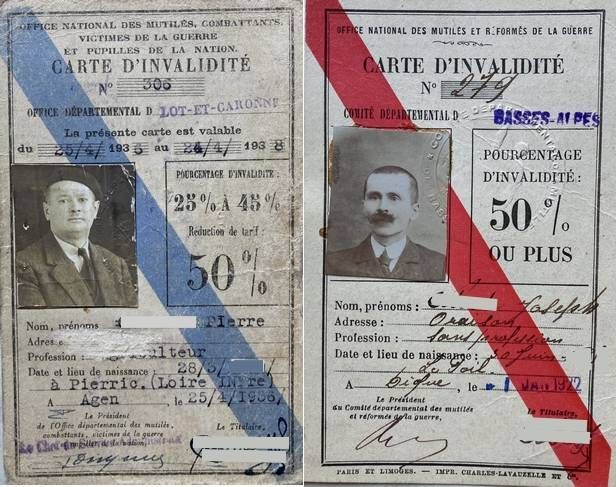 OFFICE NATIONAL DES MUTILÉS, COMBATTANTS,
VICTIMES DE LA GUERRE
ET PUPILLES DE LA NATION.
CARTE D'INVALIDITÉ
N° 306
OFFICE DÉPARTEMENTAL D LOT-ET-GARONNE
La présente carte est valable
du 25/4/ 1936 au 24/4/ 1938
POURCENTAGE
D'INVALIDITÉ:
25% À 45%
Réduction de tarif:
50%
Nom, prénoms : Pierre
Adresse
Profession : culteur
Date et lieu de naissance : 28/3/
à Pierric. (Loire Infre)
A Agen , le 25/4/1936,
Le Président
de l'Office départemental des mutilés,
combattants, victimes de la guerre
Le Titulaire,
OFFICE NATIONAL DES MUTILÉS ET RÉFORMÉS DE LA GUERRE
CARTE D'INVALIDITÉ
N° 279
COMITÉ DÉPARTEMENTAL D BASSES-ALPES
POURCENTAGE
D'INVALIDITÉ :
50%
OU PLUS
Nom, prénoms : Joseph
Adresse : Oraison
Profession : Sans profession
Date et lieu de naissance :
A Digne , le -1 JAN 1922
Le Président
du Comité départemental des mutilés
et réformés de la guerre,
Le Titulaire,
PARIS ET LIMOGES. — IMPR. CHARLES-LAVAUZELLE ET Cie.